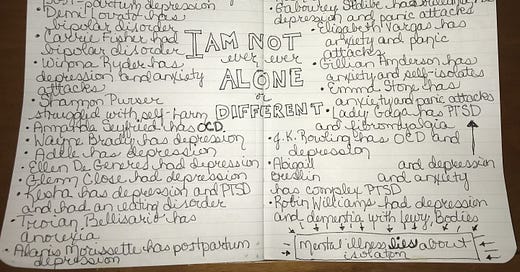 Post-partum depression
• Demi Lovato has
bipolar disorder
• Carrie Fisher had
bipolar disorder
• Winona Ryder has
depression and anxiety
attacks
• Shannon Purser
struggled with self-harm
• Amanda Seyfried has OCD
• Wayne Brady has depression
• Adele has depression
• Ellen DeGeneres had depression
• Glenn Close had depression
• Kesha has depression and PTSD
and had an eating disorder
• Troian Bellisario has
anorexia
• Alanis Morissette has postpartum
depression
I AM NOT
ever ever
ALONE
or
DIFFERENT
• Gabourey Sidibe has
depression and panic attacks
• Elizabeth Vargas has
anxiety and panic
attacks
• Gillian Anderson has
anxiety and self-isolates
• Emma Stone has
anxiety and panic attacks
• Lady Gaga has PTSD
and fibromyalgia
• J.K. Rowling has OCD and
depression
• Abigail and depression
Breslin and anxiety
has complex PTSD
• Robin Williams had depression
and dementia with Lewy Bodies
Mental illness lies about
isolation